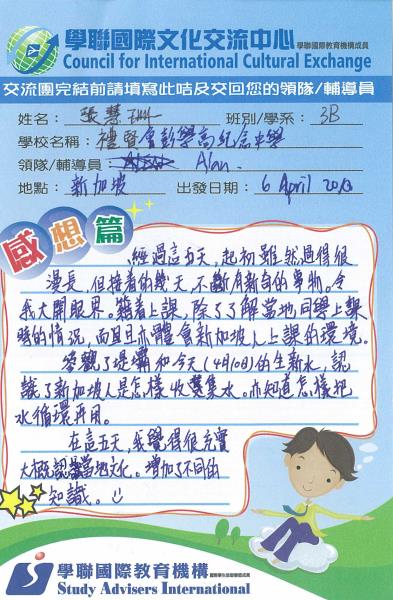 學聯國際文化交流中心 學聯國際教育機構成員
Council for International Cultural Exchange
交流團完結前請填寫此咭及交回您的領隊/輔導員
姓名： 張慧珊 班別/學系： 3B
學校名稱： 禮賢會彭學高紀念中學
領隊/輔導員： Alan.
地點： 新加坡 出發日期： 6 April 2013
感想篇
經過這五天，起初雖然過得很
漫長，但接着的幾天，不斷有新奇的事物。令
我大開眼界。藉着上課，除了了解當地同學上課
時的情況，而且亦體會新加坡人上課的環境。
參觀了堤壩和今天(4月10日)的生新水，認
識了新加坡人是怎樣收集集水。亦知道怎樣把
水循環再用。
在這五天，我覺得很充實
大概認識當地文化。增加了不同的
知識。
學聯國際教育機構
Study Advisers International